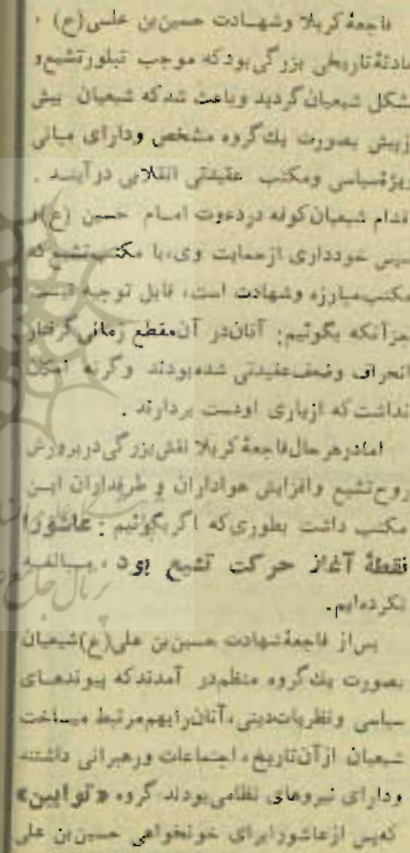 فاجعهٔ کربلا وشهـادت حسین‌بن علـی(ع) ،
حادثهٔ تاریخی بزرگی بودکه موجب تبلور تشیع و
شکل شیعیان گردید وباعث شدکه شیعیان بیش
ازپیش بصورت یك گروه مشخص ودارای مبانی
ویژه‌سیاسی ومکتب عقیدتی انقلابی درآینـد .
اقدام شیعیان کوفه دردعوت امـام حسین (ع)و
سپس خودداری ازحمایت وی، با مکتب‌تشیع که
مکتب‌مبارزه وشهادت است، قابل توجیه نیست
جزآنکه بگوئیم: آنان‌در آن‌مقطع زمانی‌گرفتار
انحراف وضعف‌عقیدتی شده‌بودند وگرنه امکان
نداشت که ازیاری اودست بردارند .
امادرهرحال‌فاجعهٔ کربلا نقش‌بزرگی درپرورش
روح‌تشیع وافزایش هواداران و طرفداران ایـن
مکتب داشت بطوری‌که اگربگوئیم : عاشورا
نقطهٔ آغاز حرکت تشیع بود ، مبـالغـه
نکرده‌ایم.
پس‌از فاجعهٔ‌شهادت حسین‌بن علی(ع)شیعیان
بصورت یك‌گروه منظم‌در آمدندکه پیوندهـای
سیاسی ونظریات‌دینی،آنان‌رابهم‌مرتبط میساخت
شیعیان ازآن‌تاریخ، اجتماعات ورهبرانی داشتند
ودارای نیروهای نظامی‌بودند گروه «توابین»
که‌پس ازعاشورابرای خونخواهی حسین‌بن علی